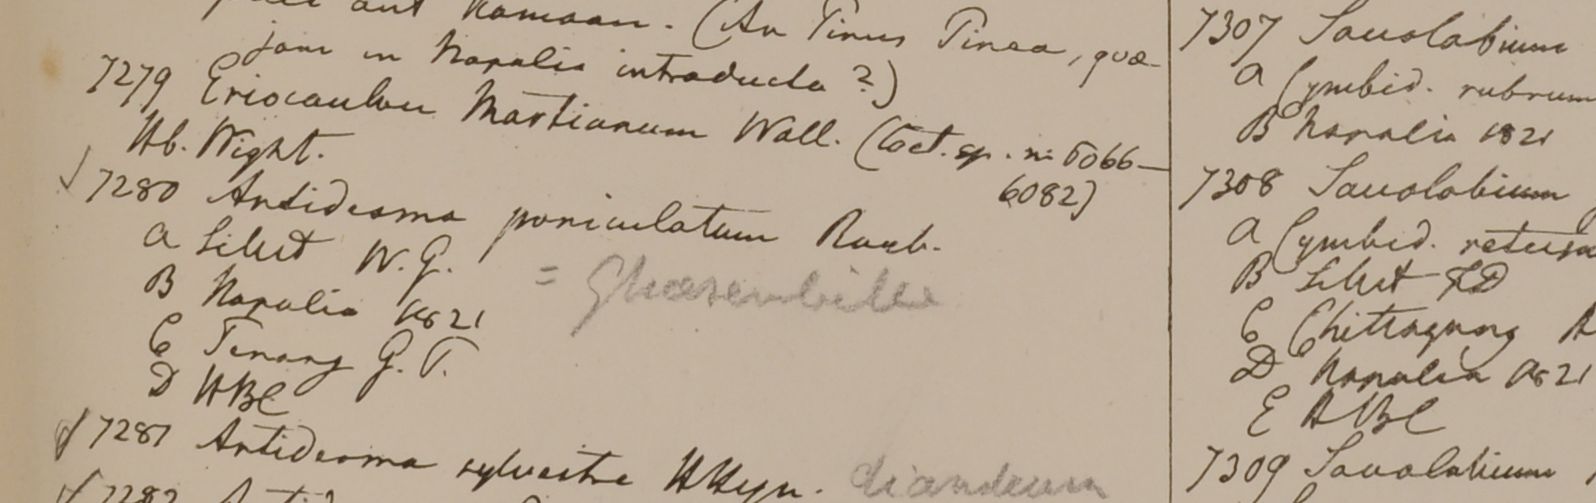 aut Kamaon. (An Pinus Pinea, quae
jam in Napalia introducta?)
7279 Eriocaulon Martianum Wall. (Coct. sp. n: 6066—
6082)
Hb. Wight.
7280 Antidesma paniculatum Roxb.
a Silhet W.G.
B Napalia 1821
= Ghaesembilla
C Penang G.P.
D HBC
7281 Antidesma sylvestre HHeyn. diandrum
7282
7307 Saccolabium
a Cymbid. rubrum
B Napalia 1821
7308 Saccolabium
a Cymbid. retusa
B Silhet FD
C Chittagong
D Napalia 1821
E HBC
7309 Saccolabium